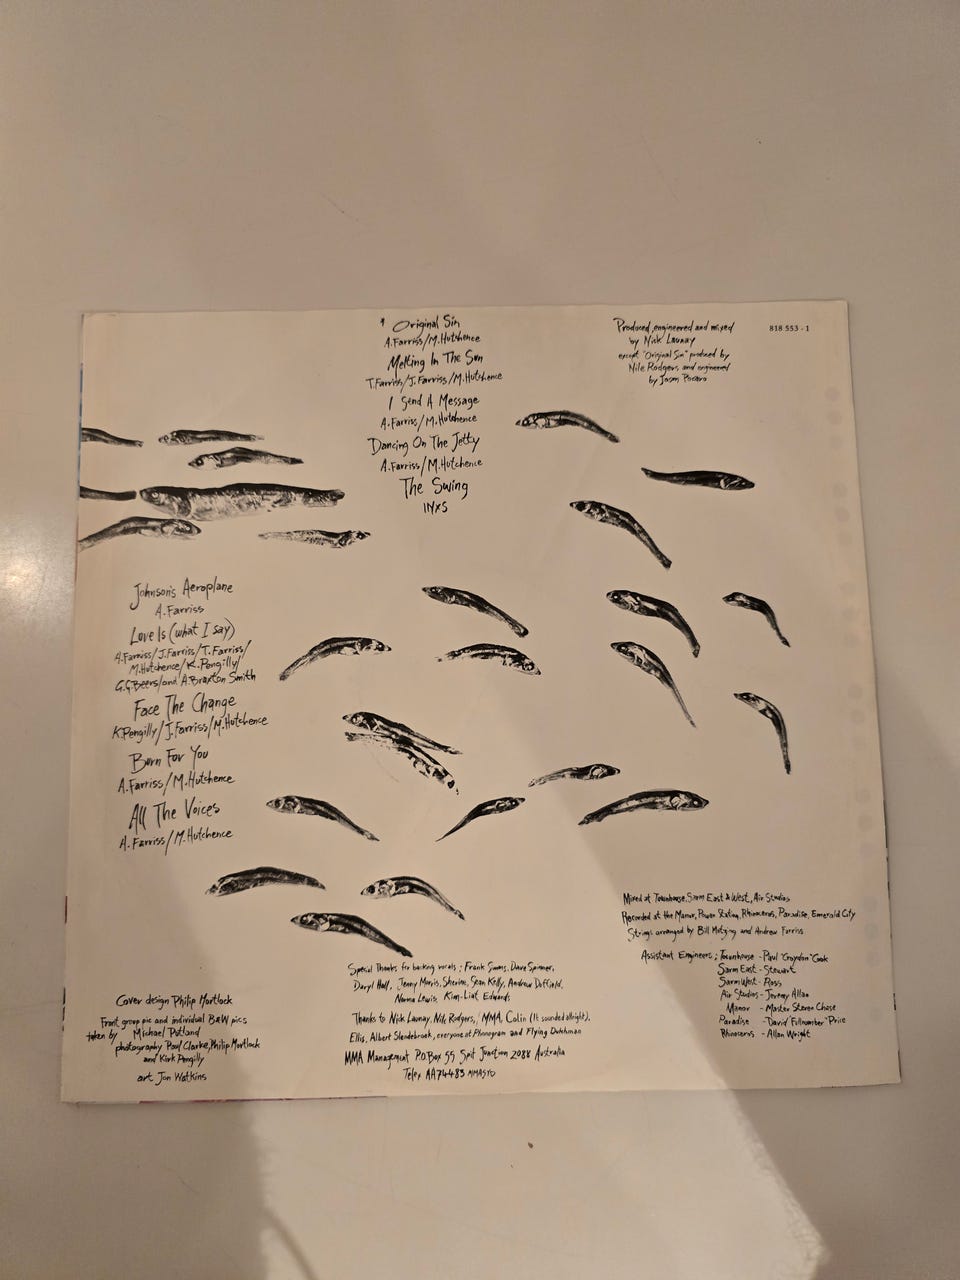 * Original Sin
A. Farriss/M. Hutchence
Melting In The Sun
T. Farriss/J. Farriss/M. Hutchence
I Send A Message
A. Farriss/M. Hutchence
Dancing On The Jetty
A. Farriss/M. Hutchence
The Swing
INXS
Produced, engineered and mixed
by Nick Launay
except "Original Sin" produced by
Nile Rodgers, and engineered
by Jason
818 553 - 1
Johnson's Aeroplane
A. Farriss
Love Is (what I say)
A. Farriss/J. Farriss/T. Farriss/
M. Hutchence/K. Pengilly/
G.G. Beers/and A. Braxton Smith
Face The Change
K. Pengilly/J. Farriss/M. Hutchence
Burn For You
A. Farriss/M. Hutchence
All The Voices
A. Farriss/M. Hutchence
Mixed at Townhouse, Sarm East & West, Air Studios
Recorded at the Manor, Power Station, Rhinoceros, Paradise, Emerald City
Strings arranged by Bill and Andrew Farriss
Assistant Engineers; Townhouse - Paul "Croydon" Cook
Sarm East - Stewart
Sarm West - Ross
Air Studios - Jeremy Allan
Manor - Master Steven Chase
Paradise - David Price
Rhinoceros - Allan Wright
Special Thanks for backing vocals; Frank Simms, Dave Spinner,
Daryl Hall, Jenny Morris, Sherine, Sean Kelly, Andrew Duffield,
Norma Lewis, Kim-Liat Edwards
Thanks to Nick Launay, Nile Rodgers, MMA, Colin (It sounded allright),
Ellis, Albert Slendebroek, everyone at Phonogram and Flying Dutchman
MMA Management P.O. Box 55 Spit Junction 2088 Australia
Telex AA74483 MMASYD
Cover design Philip Mortlock
Front group pic and individual B&W pics
taken by Michael Putland
photography Paul Clarke, Philip Mortlock
and Kirk Pengilly
art Jon Watkins